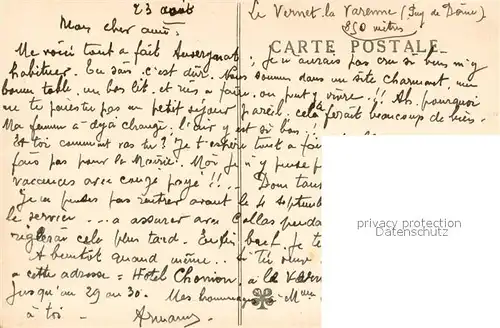 23 août
Le Vernet-la Varenne (Puy de Dôme)
850 mètres
CARTE POSTALE
Mon cher ami,
Me voici tout a fait Auvergnat. Je n'aurais pas cru si bien m'y
habituer. En san c'est dur. Nous sommes dans un site charmant, un
bonne table, un bon lit, et rien a faire, on peut y vivre !!! Ah. pourquoi
ne te paies tu pas un petit séjour pareil, cela ferait beaucoup de bien.
Ma femme a déjà changé. L'air y est si bon !
Et toi comment vas tu? Je t'espère tout a fai
fais pas pour la Mairie. Moi je n'y pense p
vacances avec congé payé !!! Dom
Je ne pense pas rentrer avant le 4 septemb
le service ... a assurer avec Callas penda
réglerai cela plus tard. Enfin bref. Je t
A bientôt quand même. Si tu
a cette adresse = Hotel à la Varen
jusqu'au 29 au 30. Mes hommages à Mme
à toi - Armand
privacy protection
Datenschutz